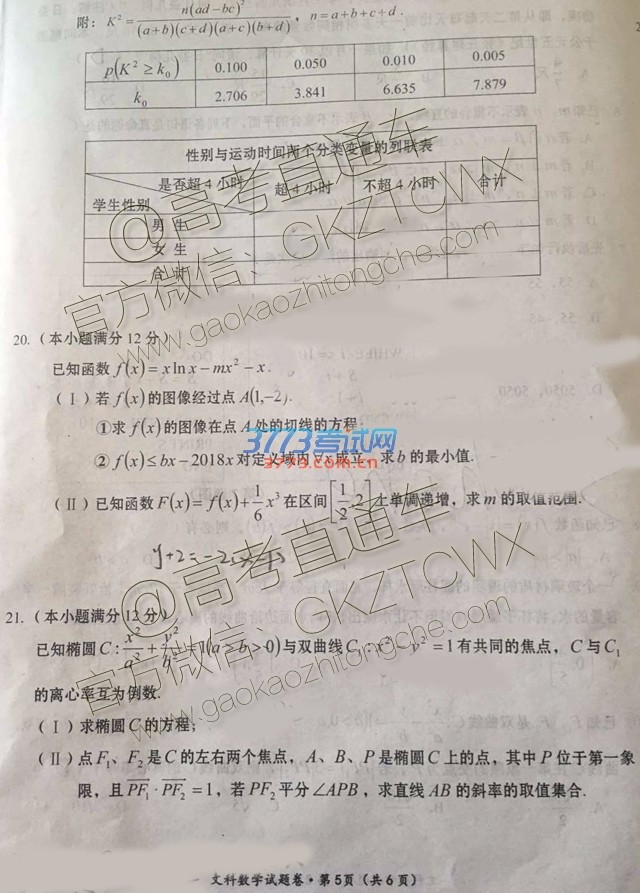 附：K² = n(ad−bc)² / (a+b)(c+d)(a+c)(b+d)，n=a+b+c+d.
p(K² ≥ k₀) 0.100 0.050 0.010 0.005
k₀ 2.706 3.841 6.635 7.879
性别与运动时间两个分类变量的列联表
是否超4小时
学生性别 超4小时 不超4小时 合计
男 生
女 生
合 计
@高考直通车
官方微信、GKZTCWX
www.gaokaozhitongche.com
20.（本小题满分12分）
已知函数 f(x)=x ln x−mx²−x.
（Ⅰ）若 f(x)的图像经过点 A(1,−2).
①求 f(x)的图像在点 A 处的切线的方程；
② f(x)≤bx−2018x 对定义域内∀x成立，求 b 的最小值.
3773考试网
3773.com
（Ⅱ）已知函数 F(x)=f(x)+1/6 x³ 在区间[1/2,2]上单调递增，求 m 的取值范围.
y+2=−2(x−1)
@高考直通车
官方微信、GKZTCWX
www.gaokaozhitongche.com
21.（本小题满分12分）
已知椭圆 C: x²/a² + y²/b² =1(a>b>0)与双曲线 C₁: x²−y²=1有共同的焦点，C 与 C₁
的离心率互为倒数.
（Ⅰ）求椭圆 C 的方程；
（Ⅱ）点 F₁、F₂ 是 C 的左右两个焦点，A、B、P 是椭圆 C 上的点，其中 P 位于第一象
限，且 PF₁·PF₂=1，若 PF₂ 平分∠APB，求直线 AB 的斜率的取值集合.
文科数学试题卷·第5页（共6页）